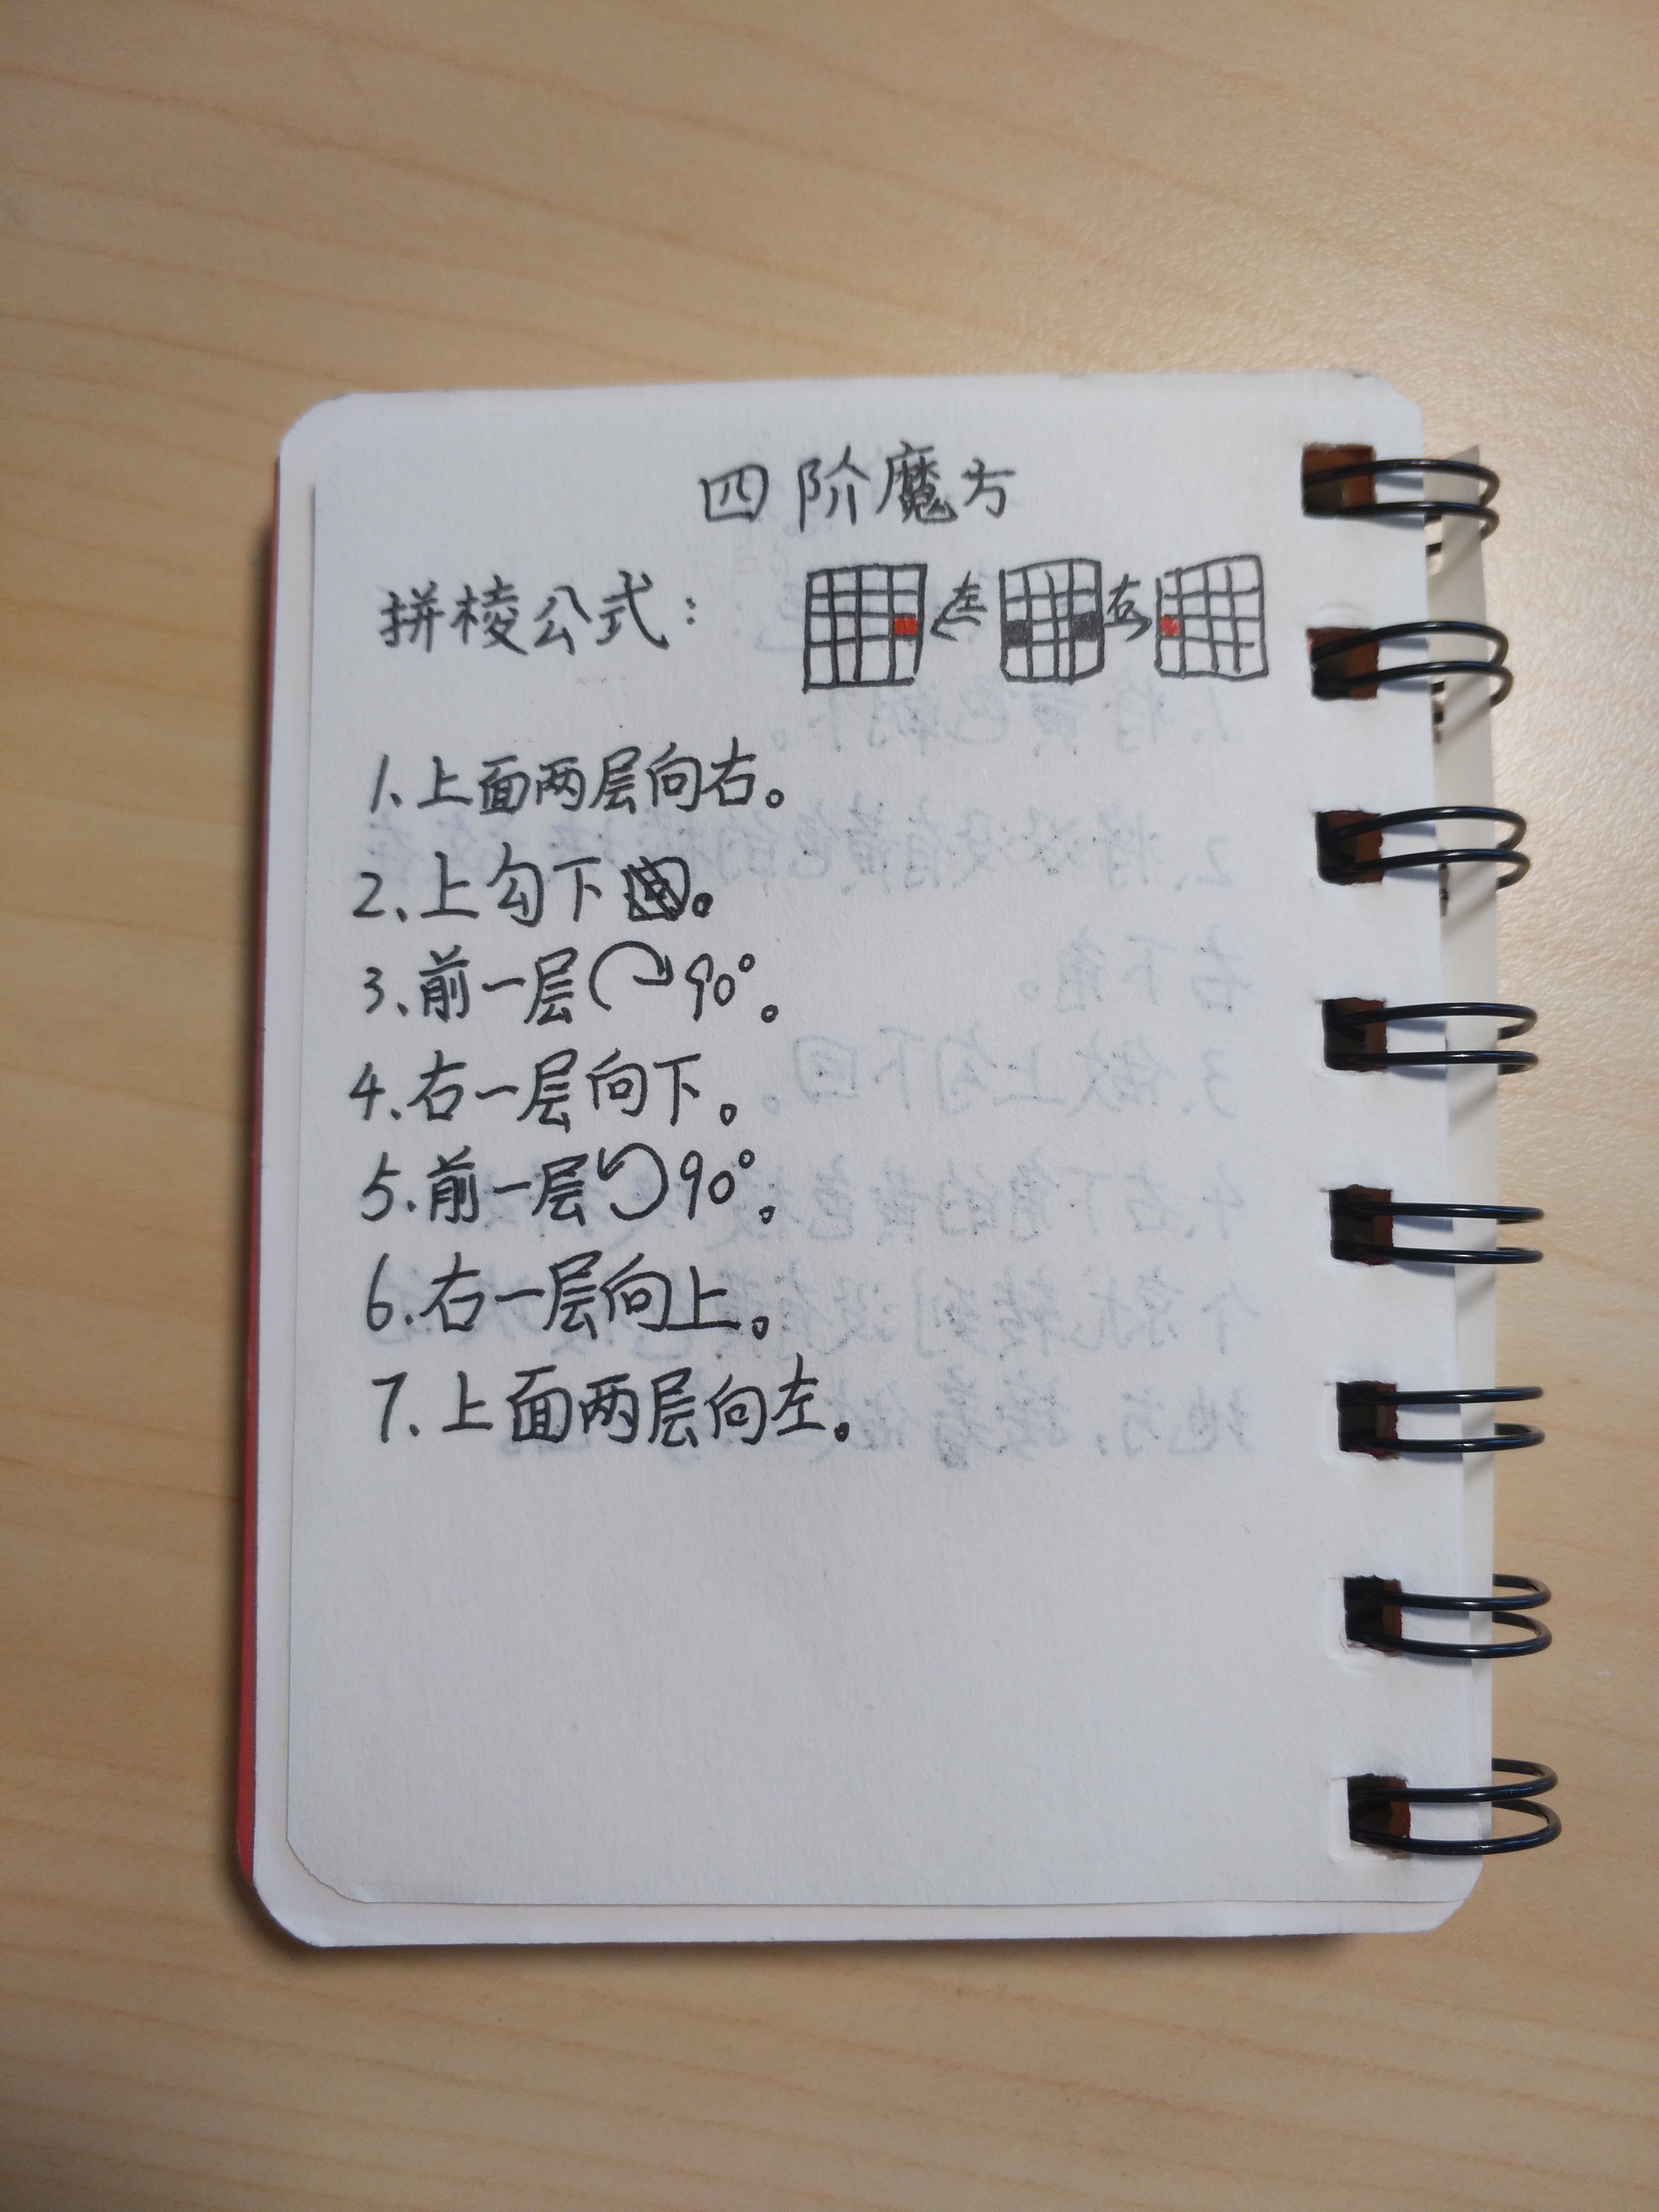 四阶魔方
拼棱公式： 左 右
1、上面两层向右。
2、上勾下。
3、前一层90°。
4、右一层向下。
5、前一层90°。
6、右一层向上。
7、上面两层向左。